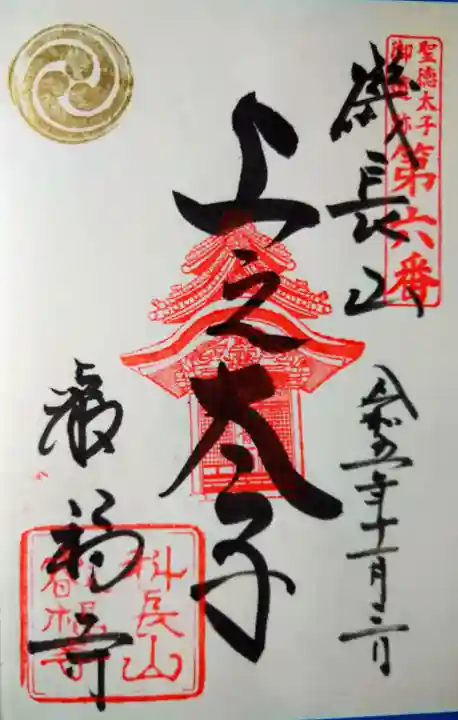 聖徳太子
御遺跡
第六番
磯長山
令和五年十一月
上之太子
叡福寺
科長山